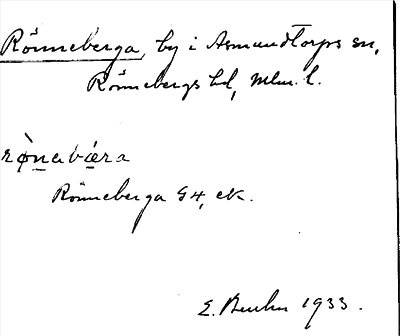 Rönneberga, by i Asmundtorps sn,
Rönnebergs hd, Mlm. l.
rò̜nabæ̀ra
Rönneberga G4, ek.
E. 1933.